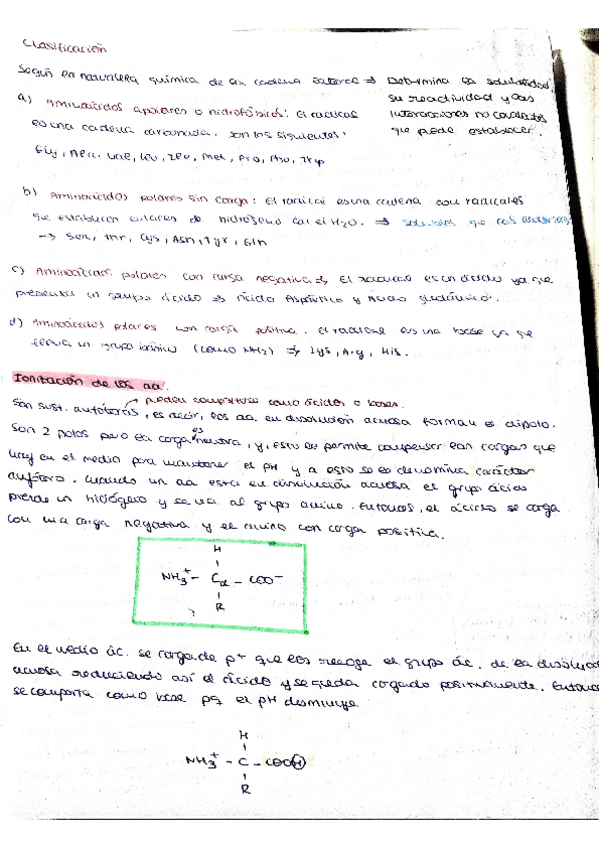 Clasificación
Según la naturaleza química de la cadena lateral ⇒ Determina la solubilidad
su reactividad y las
interacciones no covalentes
que puede establecer.
a) Aminoácidos apolares o hidrofóbicos: El radical
es una cadena carbonada. Son los siguientes:
Gly, Ala, Val, Leu, Ile, Met, Pro, Phe, Trp
b) Aminoácidos polares sin carga: El radical es una cadena con radicales
que establecen enlaces de hidrógeno con el H2O. ⇒ solubles que los anteriores
→ Ser, Thr, Cys, Asn, Tyr, Gln
c) Aminoácidos polares con carga negativa ⇒ El radical es un ácido ya que
presenta un grupo ácido ⇒ Ácido Aspártico y Ácido glutámico.
d) Aminoácidos polares con carga positiva. El radical es una base ya que
lleva un grupo básico (como NH2) ⇒ Lys, Arg, His.
Ionización de los aa.
→ pueden comportarse como ácidos o bases.
Son sust. anfóteras, es decir, los aa en disolución acuosa forman el dipolo.
Son 2 polos pero la carga es neutra, y, esto les permite compensar las cargas que
hay en el medio para mantener el pH y a esto se le denomina carácter
anfótero. Cuando un aa está en disolución acuosa el grupo ácido
pierde un hidrógeno y se va al grupo amino. Entonces, el ácido se carga
con una carga negativa y el amino con carga positiva.
H
NH3+ - Cα - COO-
R
En el medio ác. se carga de p+ que los recoge el grupo ác. de la disolució
acuosa reduciendo así el ácido y se queda cargado positivamente. Entonces
se comporta como base pq el pH disminuye
H
NH3+ - C - COOH
R